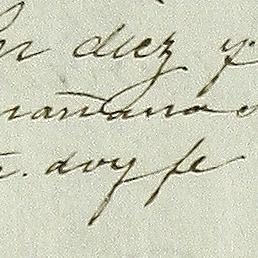 diez y
mañana
doy fe